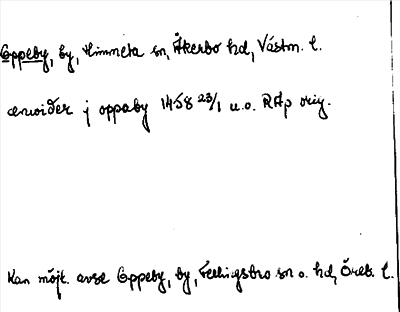 Oppeby, by, Himmeta sn, Åkerbo hd, Västm. l.
ænwider j oppaby 1458 23/1 u.o. RAp orig.
Kan möjl. avse Oppeby, by, Fellingsbro sn o. hd, Öreb. l.